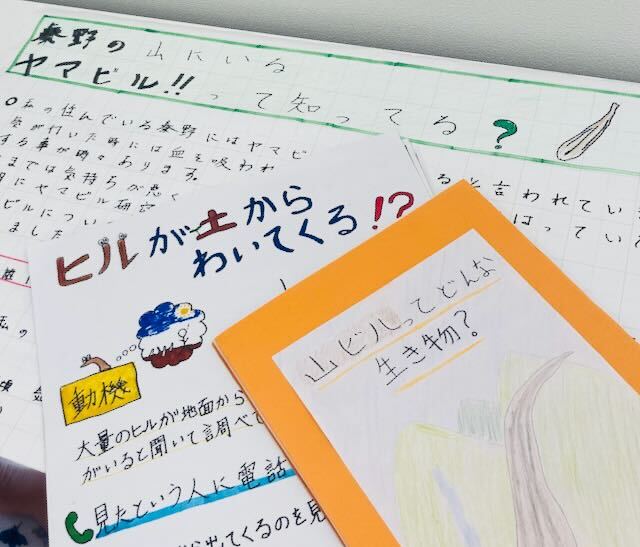 秦野の山にいる
ヤマビル!!って知ってる?
の住んでいる秦野にはヤマビ
気が付いた時には血を吸われ
する事が時々あります。
までは気持ちが悪く
にヤマビル研究
ビルについ
ました
ると言われてい
ヒルが土から
わいてくる!?
動機
大量のヒルが地面から
がいると聞いて調べて
見たという人に電話
出てくるのを見
山ビルってどんな
生き物?